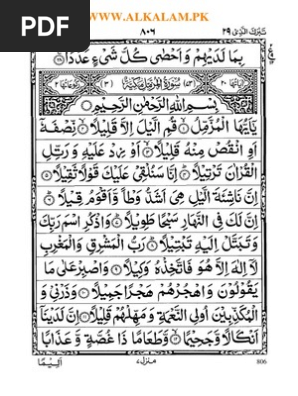 www.ALKALAM.PK
PDF
تَبٰرَكَ الَّذِىْ ٢٩
٨٠٦
بِمَا لَدَيْهِمْ وَاَحْصٰى كُلَّ شَىْءٍ عَدَدًا
سُوْرَةُ الْمُزَّمِّلِ مَكِّيَّةٌ
بِسْمِ اللّٰهِ الرَّحْمٰنِ الرَّحِيْمِ
يٰٓاَيُّهَا الْمُزَّمِّلُ ۙ قُمِ الَّيْلَ اِلَّا قَلِيْلًا ۙ نِّصْفَهٗٓ
اَوِ انْقُصْ مِنْهُ قَلِيْلًا ۙ اَوْ زِدْ عَلَيْهِ وَرَتِّلِ
الْقُرْاٰنَ تَرْتِيْلًا ؕ اِنَّا سَنُلْقِىْ عَلَيْكَ قَوْلًا ثَقِيْلًا
اِنَّ نَاشِئَةَ الَّيْلِ هِىَ اَشَدُّ وَطْاً وَّاَقْوَمُ قِيْلًا ؕ
اِنَّ لَكَ فِى النَّهَارِ سَبْحًا طَوِيْلًا ؕ وَاذْكُرِ اسْمَ رَبِّكَ
وَتَبَتَّلْ اِلَيْهِ تَبْتِيْلًا ؕ رَبُّ الْمَشْرِقِ وَالْمَغْرِبِ
لَاۤ اِلٰهَ اِلَّا هُوَ فَاتَّخِذْهُ وَكِيْلًا وَاصْبِرْ عَلٰى مَا
يَقُوْلُوْنَ وَاهْجُرْهُمْ هَجْرًا جَمِيْلًا وَذَرْنِىْ وَ
الْمُكَذِّبِيْنَ اُولِى النَّعْمَةِ وَمَهِّلْهُمْ قَلِيْلًا اِنَّ لَدَيْنَاۤ
اَنْكَالًا وَّجَحِيْمًا ۙ وَّطَعَامًا ذَا غُصَّةٍ وَّعَذَابًا
اَلِيْمًا
منزل ٧
806